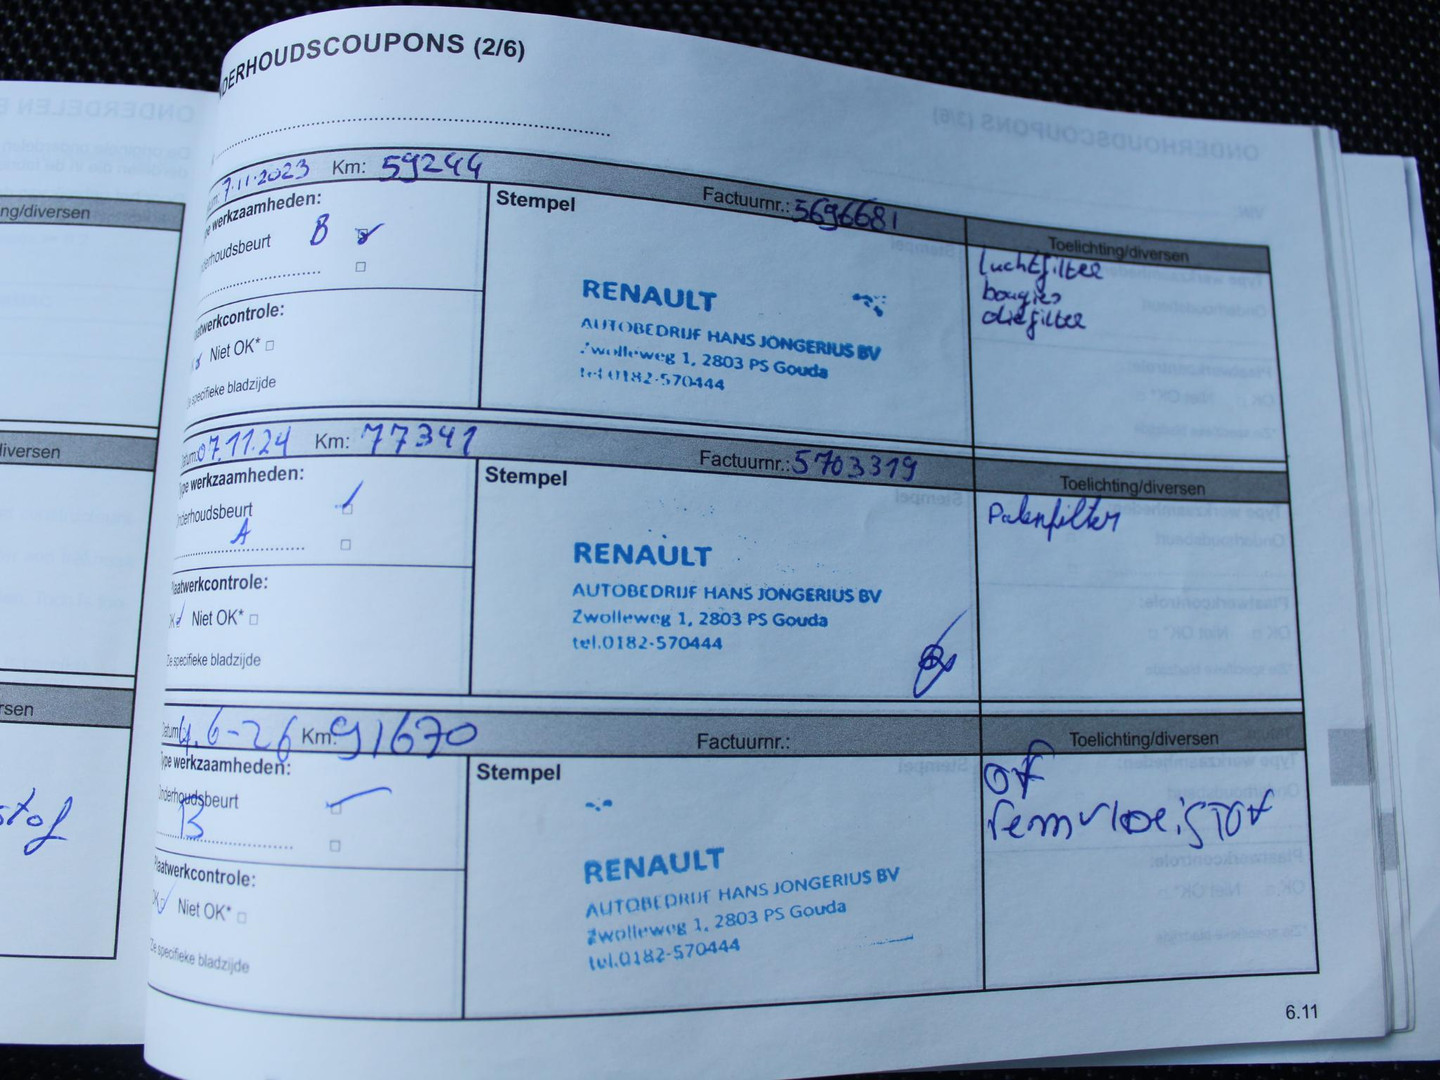 DERHOUDSCOUPONS (2/6)
7.11.2023 Km: 59244 Factuurnr.: 5696681
werkzaamheden:
B
Stempel
Toelichting/diversen
luchtfilter
bougies
oliefilter
RENAULT
AUTOBEDRIJF HANS JONGERIUS BV
Zwolleweg 1, 2803 PS Gouda
tel.0182-570444
Niet OK*
specifieke bladzijde
07.11.24 Km: 77341 Factuurnr.: 5703319
werkzaamheden:
A
Stempel
Toelichting/diversen
RENAULT
AUTOBEDRIJF HANS JONGERIUS BV
Zwolleweg 1, 2803 PS Gouda
tel.0182-570444
Niet OK*
specifieke bladzijde
6-26 Km: 91670 Factuurnr.:
werkzaamheden:
B
Stempel
Toelichting/diversen
of
remvloeistof
RENAULT
AUTOBEDRIJF HANS JONGERIUS BV
Zwolleweg 1, 2803 PS Gouda
tel.0182-570444
Niet OK*
specifieke bladzijde
6.11
ng/diversen
iversen
rsen
stof